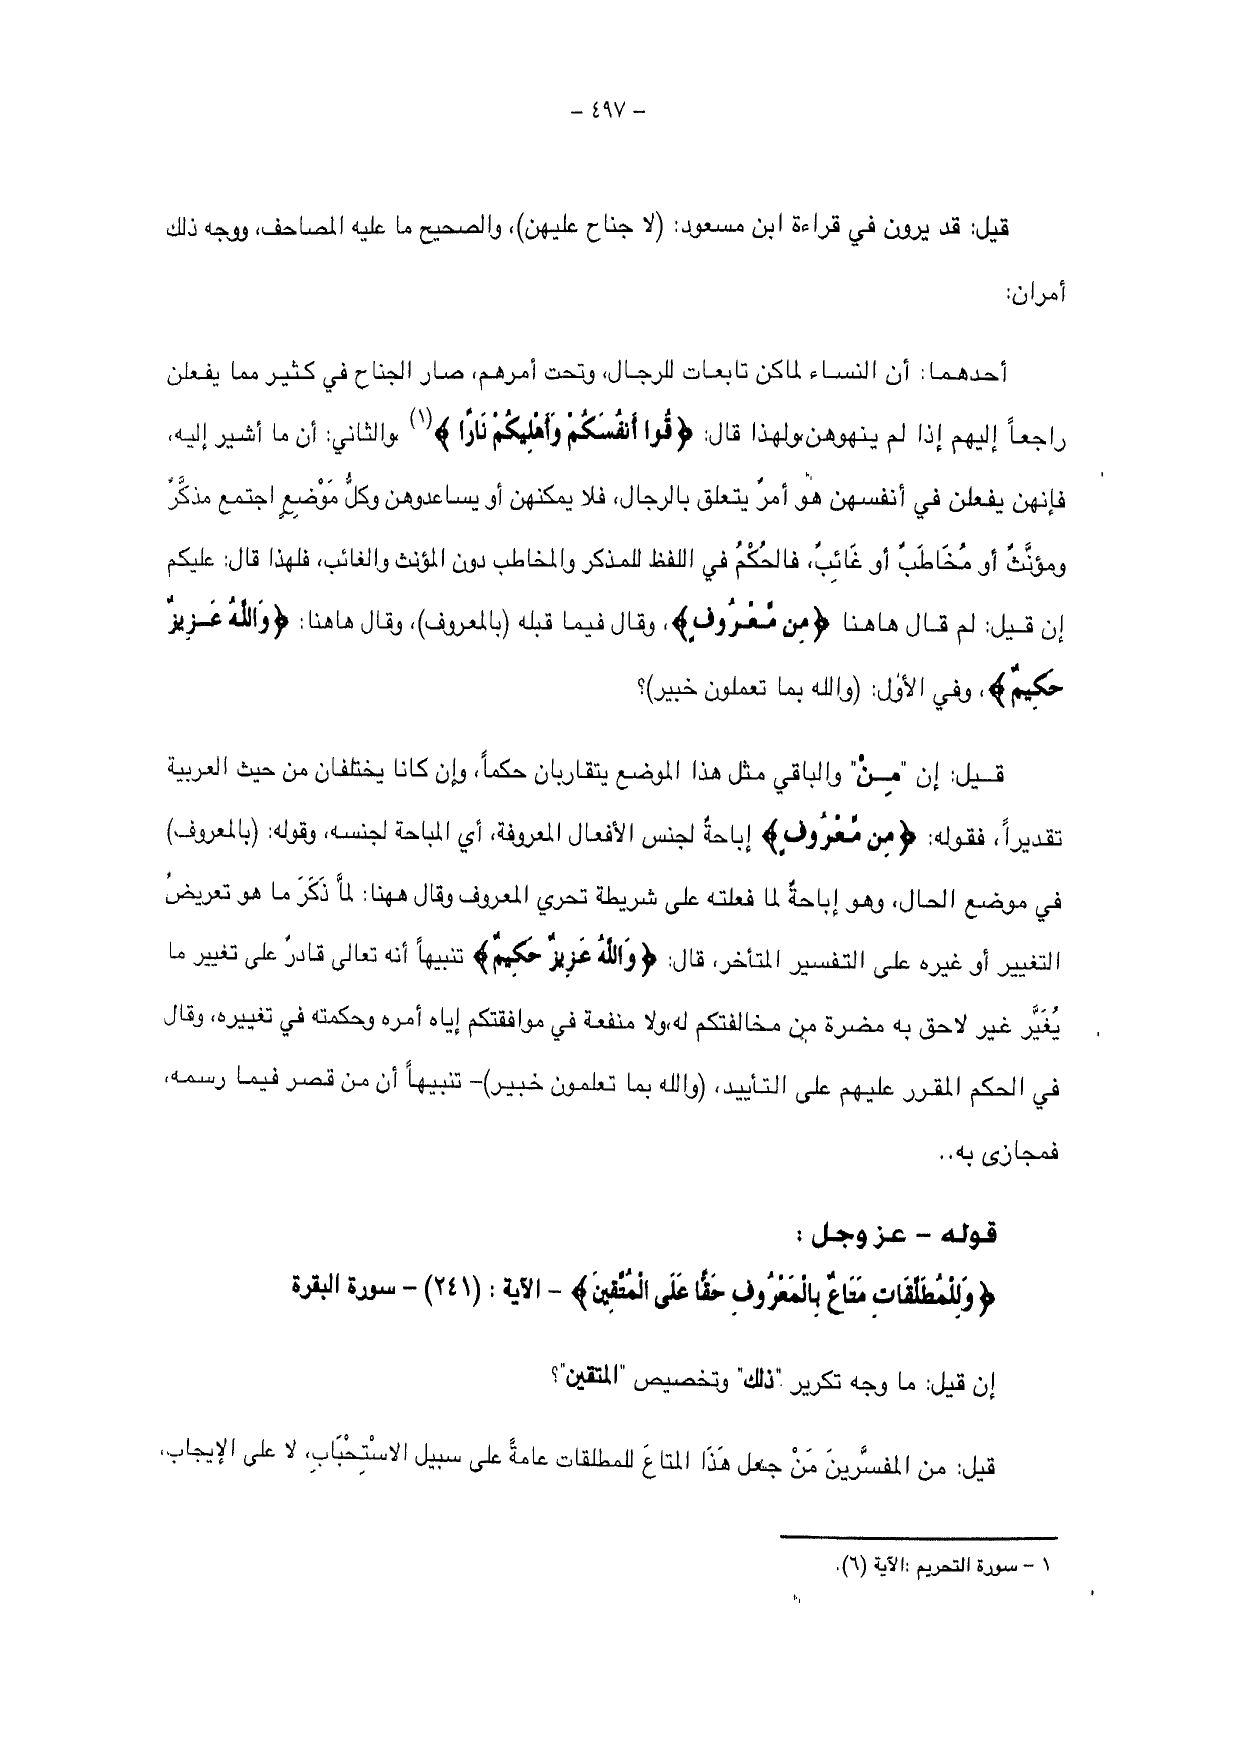 - ٤٩٧ -
قيل: قد يرون في قراءة ابن مسعود: (لا جناح عليهن)، والصحيح ما عليه المصاحف، ووجه ذلك
أمران:
أحدهما: أن النساء لماكن تابعات للرجال، وتحت أمرهم، صار الجناح في كثير مما يفعلن
راجعاً إليهم إذا لم ينهوهن،ولهذا قال: ﴿قُوا أَنفُسَكُمْ وَأَهْلِيكُمْ نَارًا﴾(١) والثاني: أن ما أشير إليه،
فإنهن يفعلن في أنفسهن هو أمرٌ يتعلق بالرجال، فلا يمكنهن أو يساعدوهن وكلُّ مَوْضعٍ اجتمع مذكَّرٌ
ومؤنَّثٌ أو مُخَاطَبٌ أو غَائبٌ، فالحُكْمُ في اللفظ للمذكر والمخاطب دون المؤنث والغائب، فلهذا قال: عليكم
إن قيل: لم قال هاهنا ﴿مِن مَّعْرُوفٍ﴾، وقال فيما قبله (بالمعروف)، وقال هاهنا: ﴿وَاللَّهُ عَزِيزٌ
حَكِيمٌ﴾، وفي الأوّل: (والله بما تعملون خبير)؟
قيل: إن "مِنْ" والباقي مثل هذا الموضع يتقاربان حكماً، وإن كانا يختلفان من حيث العربية
تقديراً، فقوله: ﴿مِن مَّعْرُوفٍ﴾ إباحةٌ لجنس الأفعال المعروفة، أي المباحة لجنسه، وقوله: (بالمعروف)
في موضع الحال، وهو إباحةٌ لما فعلته على شريطة تحري المعروف وقال ههنا: لمَّا ذَكَرَ ما هو تعريضُ
التغيير أو غيره على التفسير المتأخر، قال: ﴿وَاللَّهُ عَزِيزٌ حَكِيمٌ﴾ تنبيهاً أنه تعالى قادرٌ على تغيير ما
يُغَيَّر غير لاحق به مضرة من مخالفتكم له،ولا منفعة في موافقتكم إياه أمره وحكمته في تغييره، وقال
في الحكم المقرر عليهم على التأييد، (والله بما تعلمون خبير)- تنبيهاً أن من قصر فيما رسمه،
فمجازى به..
قوله - عز وجل :
﴿وَلِلْمُطَلَّقَاتِ مَتَاعٌ بِالْمَعْرُوفِ حَقًّا عَلَى الْمُتَّقِينَ﴾ - الآية : (٢٤١) - سورة البقرة
إن قيل: ما وجه تكرير "ذلك" وتخصيص "المتقين"؟
قيل: من المفسَّرينَ مَنْ جعل هَذَا المتاعَ للمطلقات عامةً على سبيل الاسْتِحْبَابِ، لا على الإيجاب،
١ - سورة التحريم :الآية (٦).